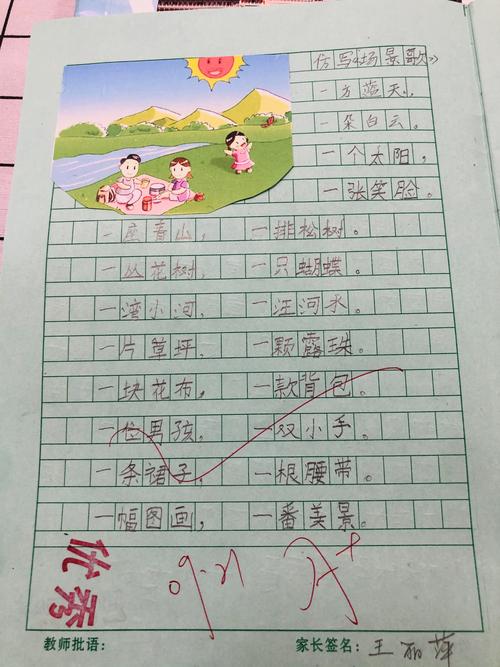 仿写《场景歌》
一方蓝天，
一朵白云。
一个太阳，
一张笑脸。
一座青山，一排松树。
一丛花树，一只蝴蝶。
一湾小河，一汪河水。
一片草坪，一颗露珠。
一块花布，一款背包。
一位男孩，一双小手。
一条裙子，一根腰带。
一幅图画，一番美景。
优秀 9.21 A+
教师批语： 家长签名：王丽萍